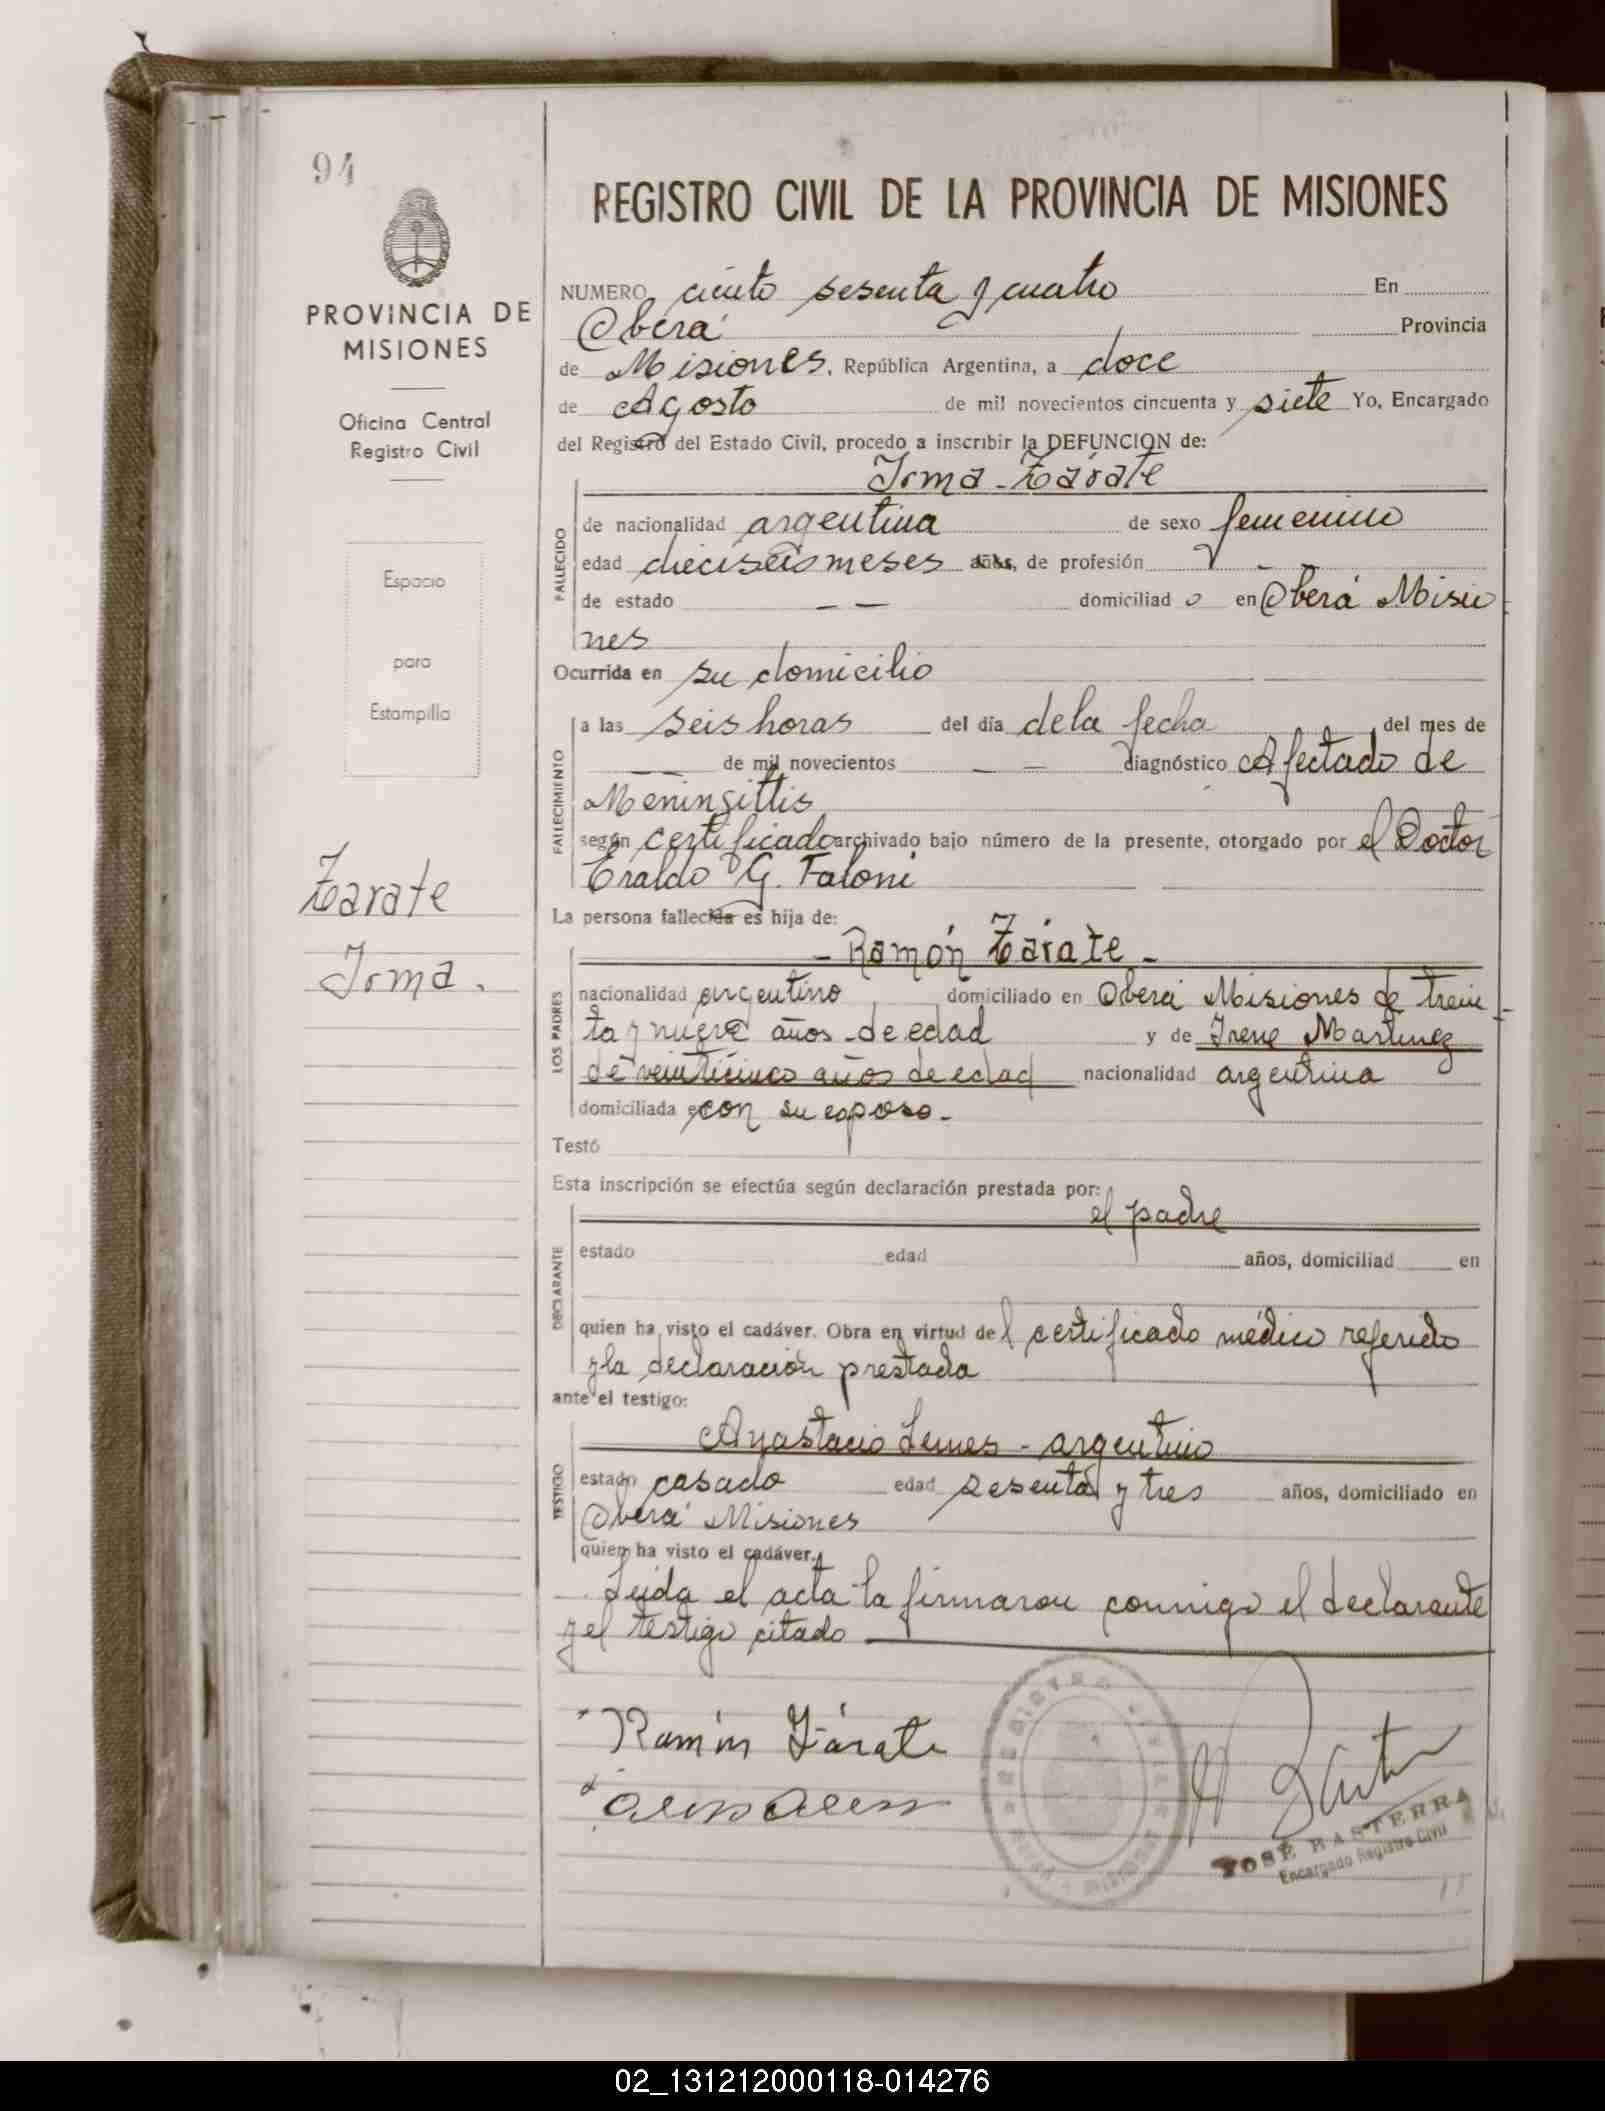 94
PROVINCIA DE
MISIONES
Oficina Central
Registro Civil
Espacio
para
Estampilla
Zarate
Irma.
REGISTRO CIVIL DE LA PROVINCIA DE MISIONES
NUMERO ciento sesenta y cuatro En
Oberá Provincia
de Misiones, República Argentina, a doce
de Agosto de mil novecientos cincuenta y siete Yo, Encargado
del Registro del Estado Civil, procedo a inscribir la DEFUNCION de:
Irma - Zárate
FALLECIDO
de nacionalidad argentina de sexo femenino
edad dieciseis meses años, de profesión -
de estado - - domiciliad o en Oberá Misio
nes
Ocurrida en su domicilio
FALLECIMIENTO
a las seis horas del día de la fecha del mes de
— de mil novecientos — — diagnóstico Afectado de
Meningittis
según certificado archivado bajo número de la presente, otorgado por el Doctor
Eraldo G. Faloni
La persona fallecida es hija de:
LOS PADRES
- Ramón Zárate -
nacionalidad argentino domiciliado en Oberá Misiones de trein
ta y nueve años de edad y de Irene Martinez
de veinticinco años de edad nacionalidad argentina
domiciliada con su esposo -
Testó
Esta inscripción se efectúa según declaración prestada por:
DECLARANTE
el padre
estado edad años, domiciliad en
quien ha visto el cadáver. Obra en virtud del certificado médico referido
y la declaración prestada
ante el testigo:
TESTIGO
Anastacio Lemes - argentino
estado casado edad sesenta y tres años, domiciliado en
Oberá Misiones
quien ha visto el cadáver.
Leida el acta la firmaron conmigo el declarante
y el testigo citado
Ramón Zárate
JOSÉ BASTERRA
Encargado Registro Civil
02_131212000118-014276